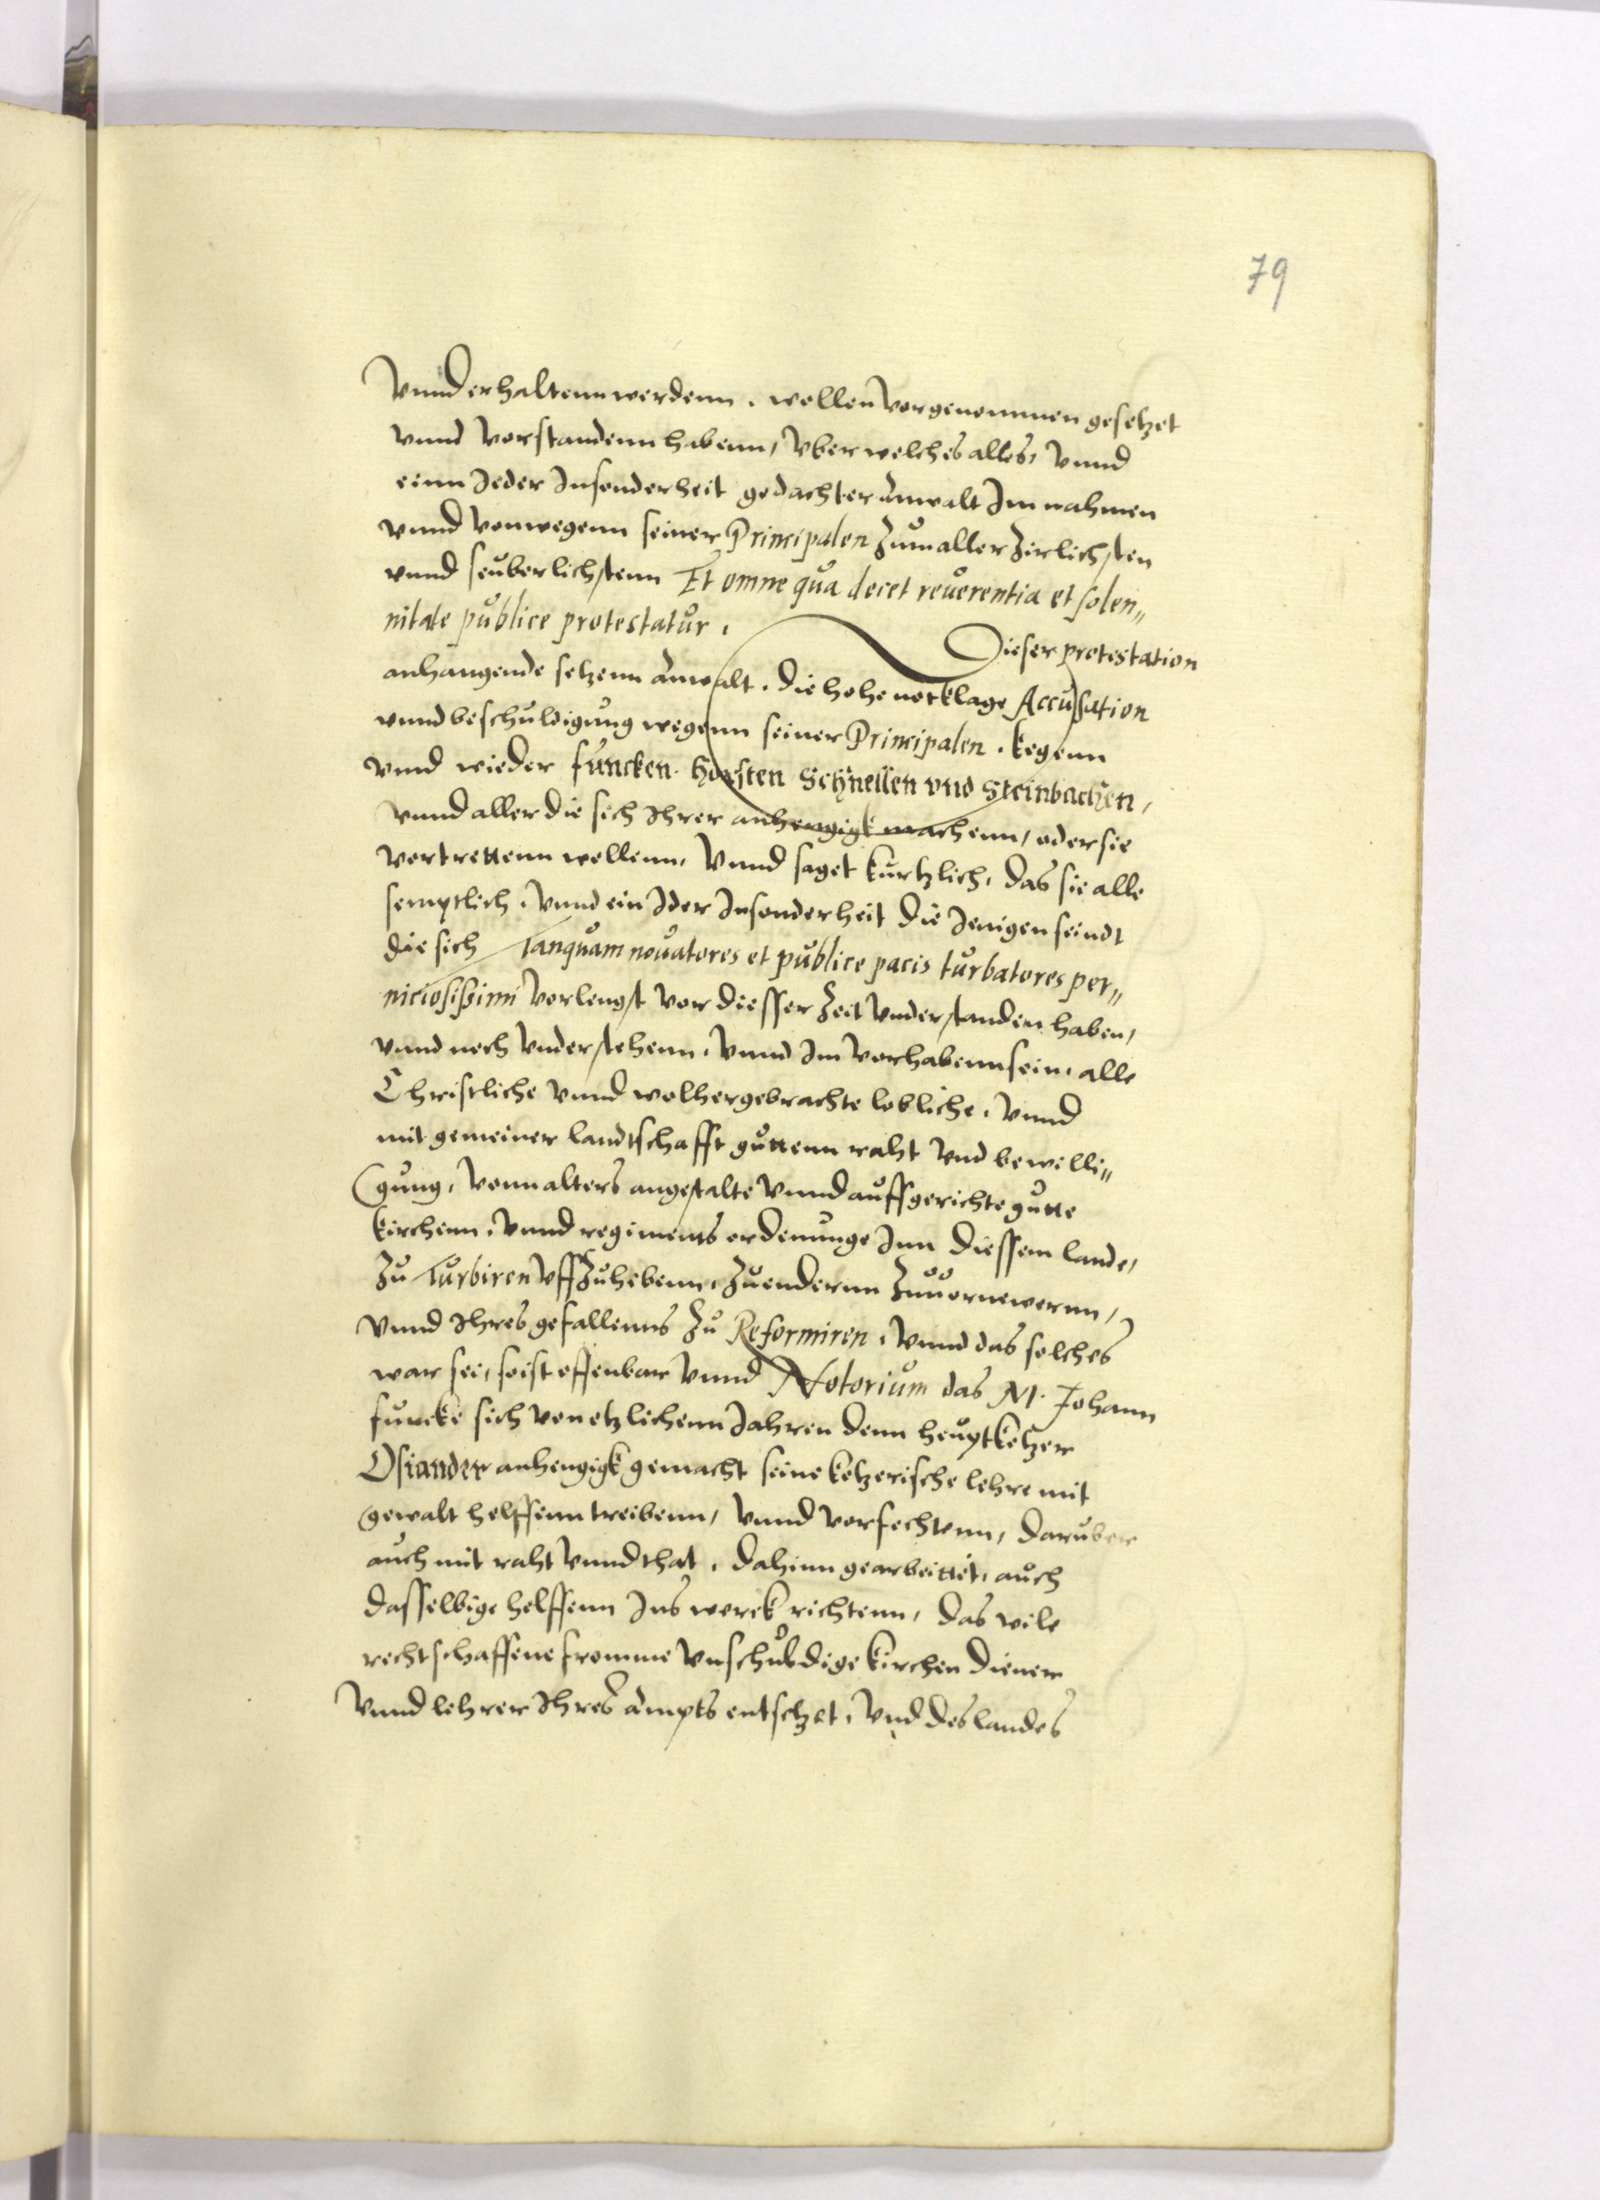 79
Vnnd erhaltenn werdenn, wollen Vorgenommen gesetzet
vnnd Vorstandenn habenn, Vber welches alles, Vnnd
einn Jeder Jnsonderheit gedachter Anwalt Jm nahmen
vnnd Vonwegenn seiner Principalen Zum aller Zirlichsten
vnnd seuberlichstenn Et omne qua decet reuerentia et solen„
nitate publice protestatur.
Dieser protestation
anhangende setzenn Anwalt. die hohe notklage Accusation
vnnd beschuldigung wegenn seiner Principalen. kegenn
vnnd wieder Funcken. Horsten Schnellen vnd Steinbachen,
Vnnd aller die sich Jhrer anhengigk machenn, oder sie
Vortrettenn wollenn, Vnnd saget kurtzlich, das sie alle
semptlich, Vnnd ein Jder Jnsonderheit die Jenigen seindt
die sich Tanquam nouatores et publice pacis turbatores per„
niciosißimi Vorlengst Vor diesser Zeit Vnderstanden haben,
vnnd noch Vnderstehenn, Vnnd Jm Vorhabenn sein, alle
Christliche Vnnd wolhergebrachte lobliche, Vnnd
mit gemeiner landtschafft guttenn raht Vnd bewilli„
gung, Vonn alters angestalte Vnnd auffgerichte gutte
kirchenn, Vnnd regiments ordenunge Jnn diessem lande,
Zu Turbiren VffZuhebenn, Zu endernn Zuuornewernn,
Vnnd Jhres gefallenns Zu Reformiren, Vnnd das solches
war sei, so ist offenbar Vnnd Notorium das M. Johann
Funcke sich Von etzlichenn Jahren denn heuptketzer
Osiander anhengigk gemacht seine ketzerische lehre mit
gewalt helffenn treibenn, Vnnd Vorfechtenn, daruber
auch mit raht Vnnd that, dahinn gearbeittet, auch
dasselbige helffenn Jns werck richtenn, das vile
rechtschaffene fromme Vnschuldige kirchen diener
Vnnd lehrer Jhres ampts entsetzet, Vnd des landes